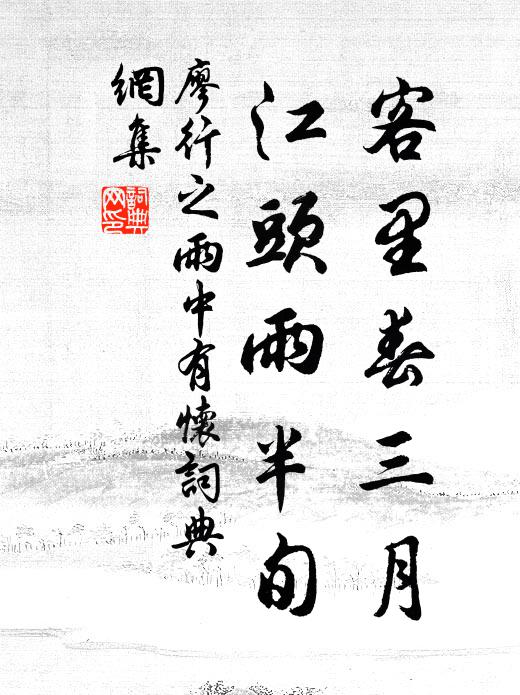 客里春三月
江頭雨半旬
廖行之雨中有懷詞典
網集
詞典
网印